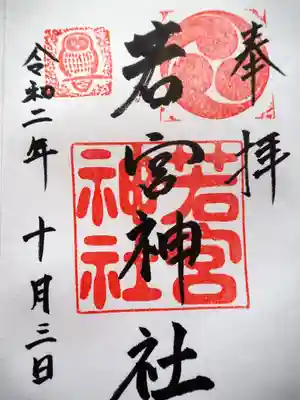 奉拝
若宮神社
若宮
神社
令和二年 十月三日